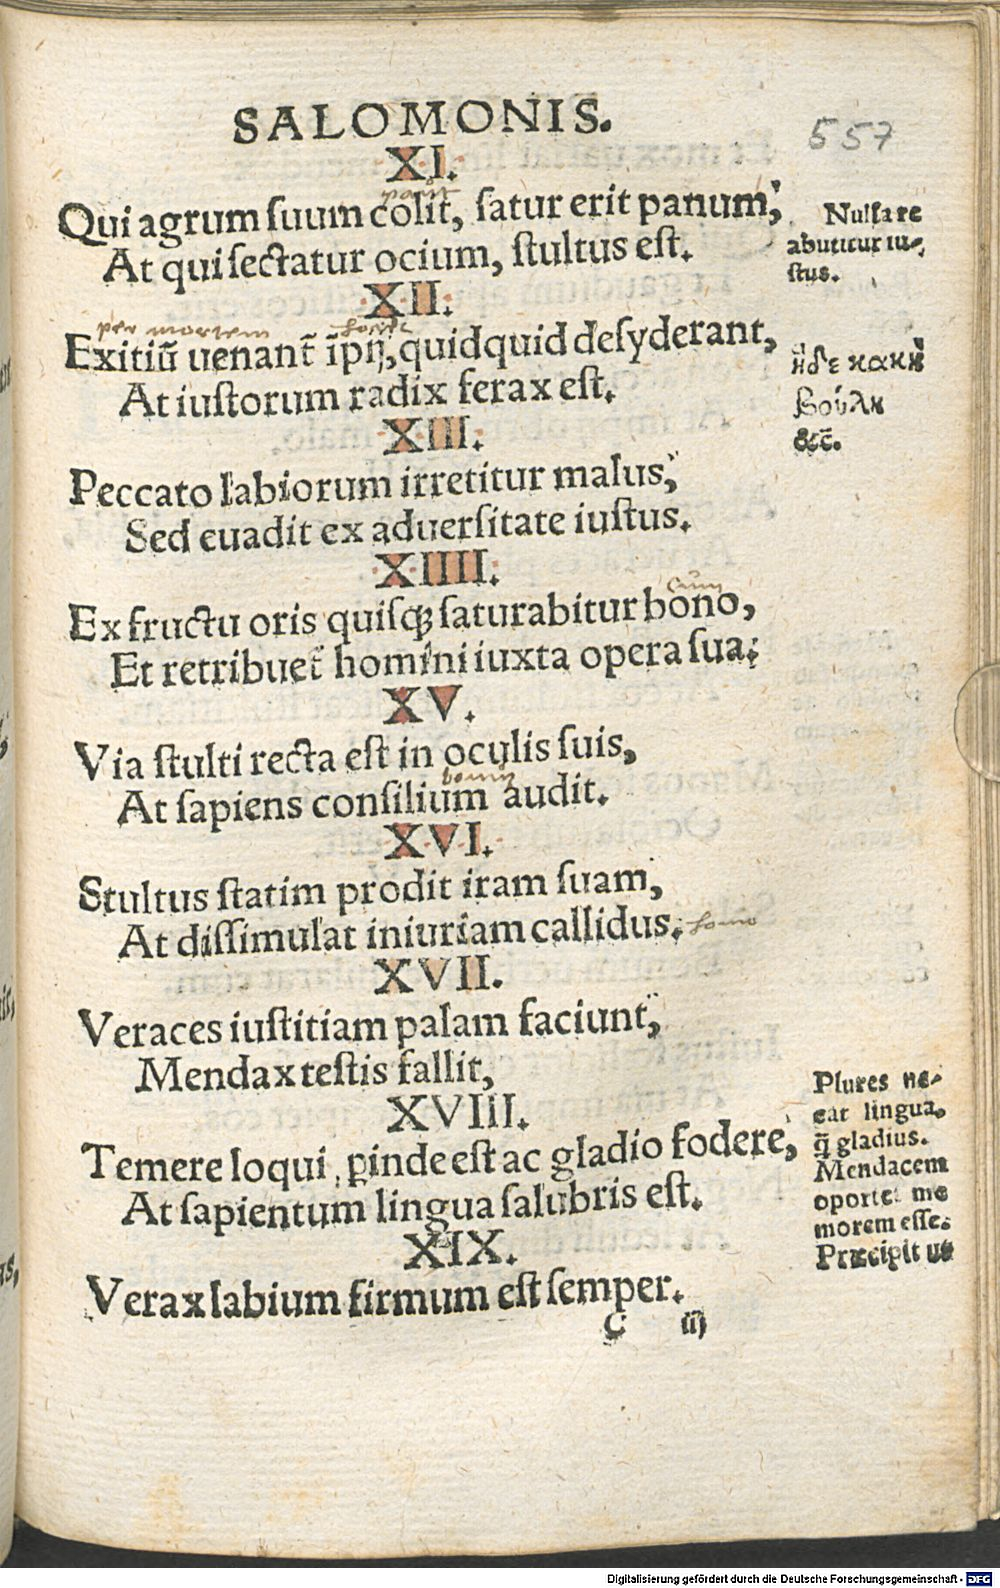 SALOMONIS.
557
XI.
Qui agrum suum colit, satur erit panum,
At qui sectatur ocium, stultus est.
Nulla re
abutitur iu-
stus.
XII.
per mortem
Exitiũ uenant̃ ĩpij, quidquid desyderant,
At iustorum radix ferax est.
ἡ δε κακὴ
βούλη
&c̃.
XIII.
Peccato labiorum irretitur malus,
Sed euadit ex aduersitate iustus.
XIIII.
cum
Ex fructu oris quisq; saturabitur bono,
Et retribuet̃ homini iuxta opera sua.
XV.
Via stulti recta est in oculis suis,
At sapiens consilium audit.
XVI.
Stultus statim prodit iram suam,
At dissimulat iniuriam callidus. homo
XVII.
Veraces iustitiam palam faciunt,
Mendax testis fallit,
XVIII.
Temere loqui, ꝑinde est ac gladio fodere,
At sapientum lingua salubris est.
Plures ne-
cat lingua,
q̃ gladius.
Mendacem
oportet me
morem esse.
Præcipit us
XIX.
Verax labium firmum est semper.
C iij
Digitalisierung gefördert durch die Deutsche Forschungsgemeinschaft - DFG